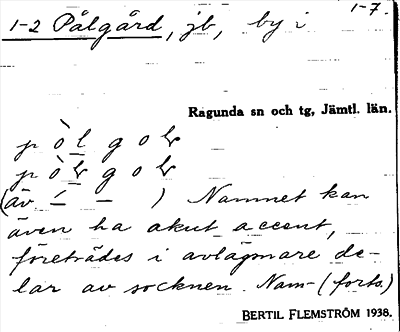 1-7.
1-2 Pålgård, jb, by i
Ragunda sn och tg, Jämtl. län.
p ò l g o
p ò g o
(äv. ) Namnet kan
även ha akut accent,
företrädes i avlägnare de-
lar av socknen. Nam- (forts.)
BERTIL FLEMSTRÖM 1938.